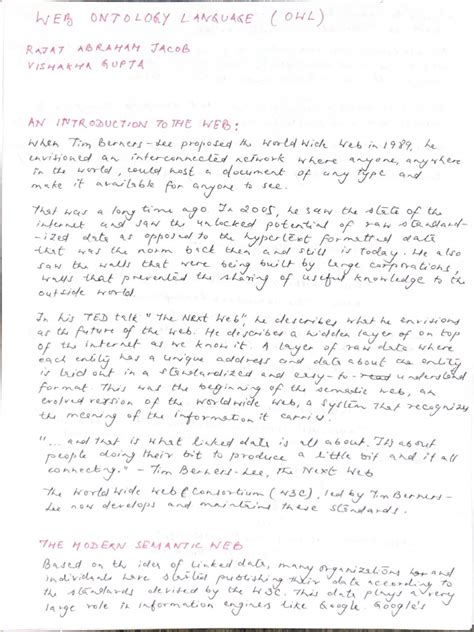 WEB ONTOLOGY LANGUAGE (OWL)
RAJAT ABRAHAM JACOB
VISHAKHA GUPTA
AN INTRODUCTION TO THE WEB:
When Tim Berners-Lee proposed the World Wide Web in 1989, he
envisioned an interconnected network where anyone, anywhere
in the world, could host a document of any type and
make it available for anyone to see.
That was a long time ago In 2005, he saw the state of the
internet and saw the unlocked potential of raw standard-
-ized data as opposed to the hypertext formatted data
that was the norm back then and still is today. He also
saw the walls that were being built by large corporations,
walls that prevented the sharing of useful knowledge to the
outside world.
In his TED talk "The Next Web", he describes what he envisions
as the future of the web. He describes a hidden layer of on top
of the internet as we know it. A layer of raw data where
each entity has a unique address and data about the entity
is laid out in a standardized and easy-to-read understand
format. This was the beginning of the semantic web, an
evolved version of the Worldwide Web, a system that recognizes
the meaning of the information it carries.
"... and that is what linked data is all about. It's about
people doing their bit to produce a little bit and it all
connecting." - Tim Berners-Lee, the Next Web
The World Wide Web Consortium (W3C), led by Tim Berners-
Lee now develops and maintains these standards.
THE MODERN SEMANTIC WEB
Based on the idea of linked data, many organizations and
individuals have started publishing their data according to
the standards devised by the W3C. This data plays a very
large role in information engines like Google. Google's